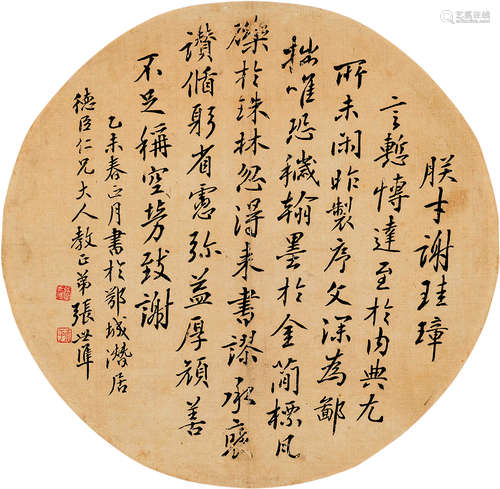 朕才謝珪璋
言慙博達至於内典尤
所未閑昨製序文深為鄙
拙唯恐穢翰墨於金簡標瓦
礫於珠林忽得來書謬承褒
讚循躬省慮弥益厚顏善
不足稱空勞致謝
乙未春正月書於鄂城潛居
德臣仁兄大人教正弟張世準